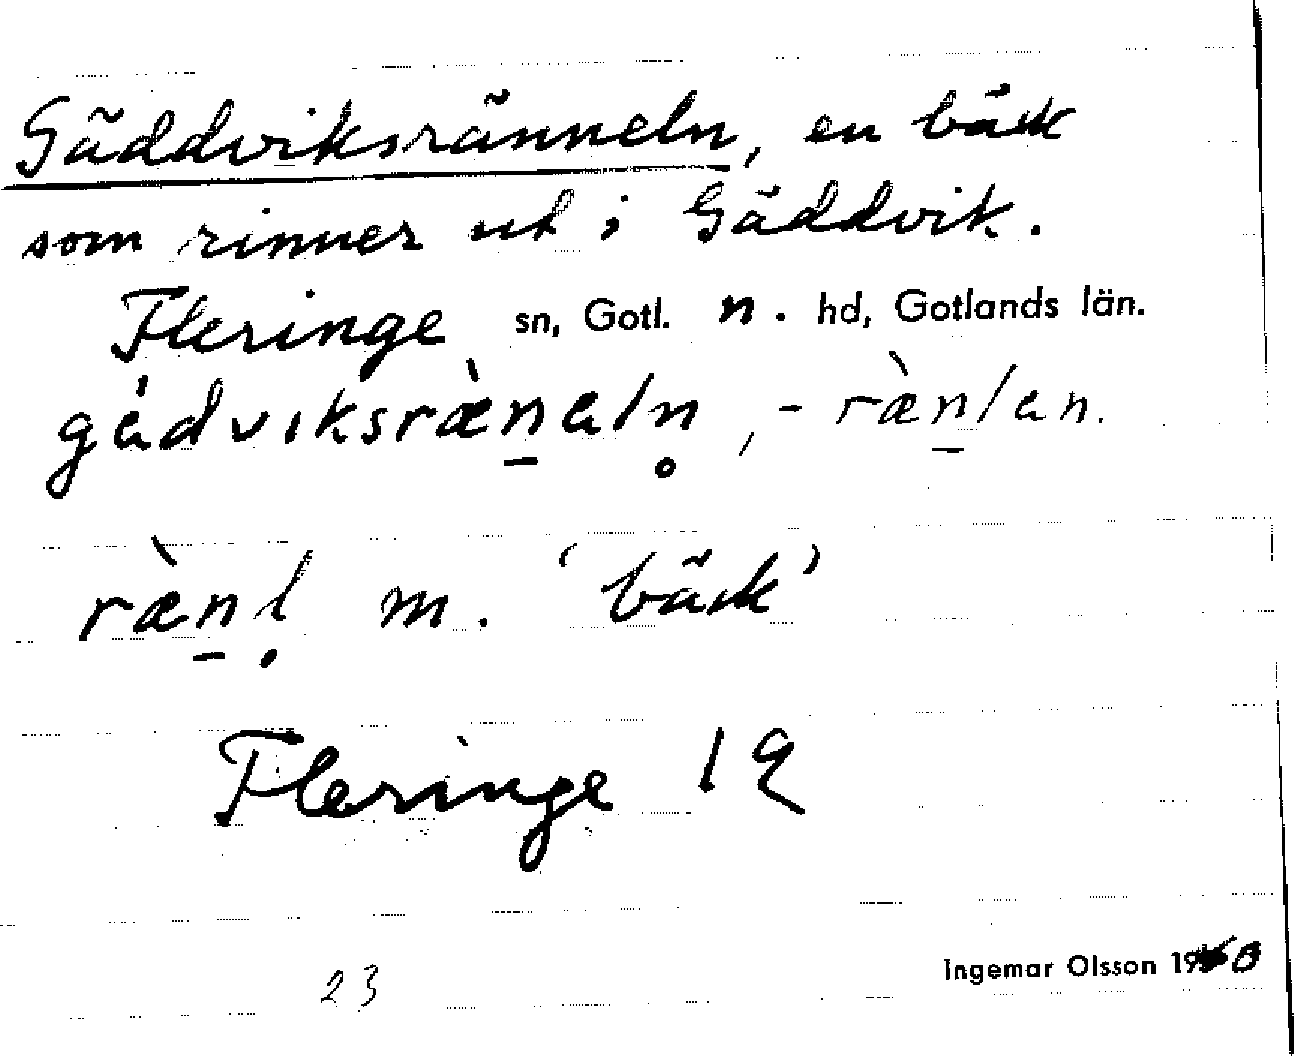 Gäddviksränneln, en bäck
som rinner ut i Gäddvik.
Fleringe sn, Gotl. n. hd, Gotlands län.
gádviksræ̀n̲aln̥, -ræ̀n̲lan.
ræ̀n̲l̥ m. ‘bäck’
Fleringe 19
23
Ingemar Olsson